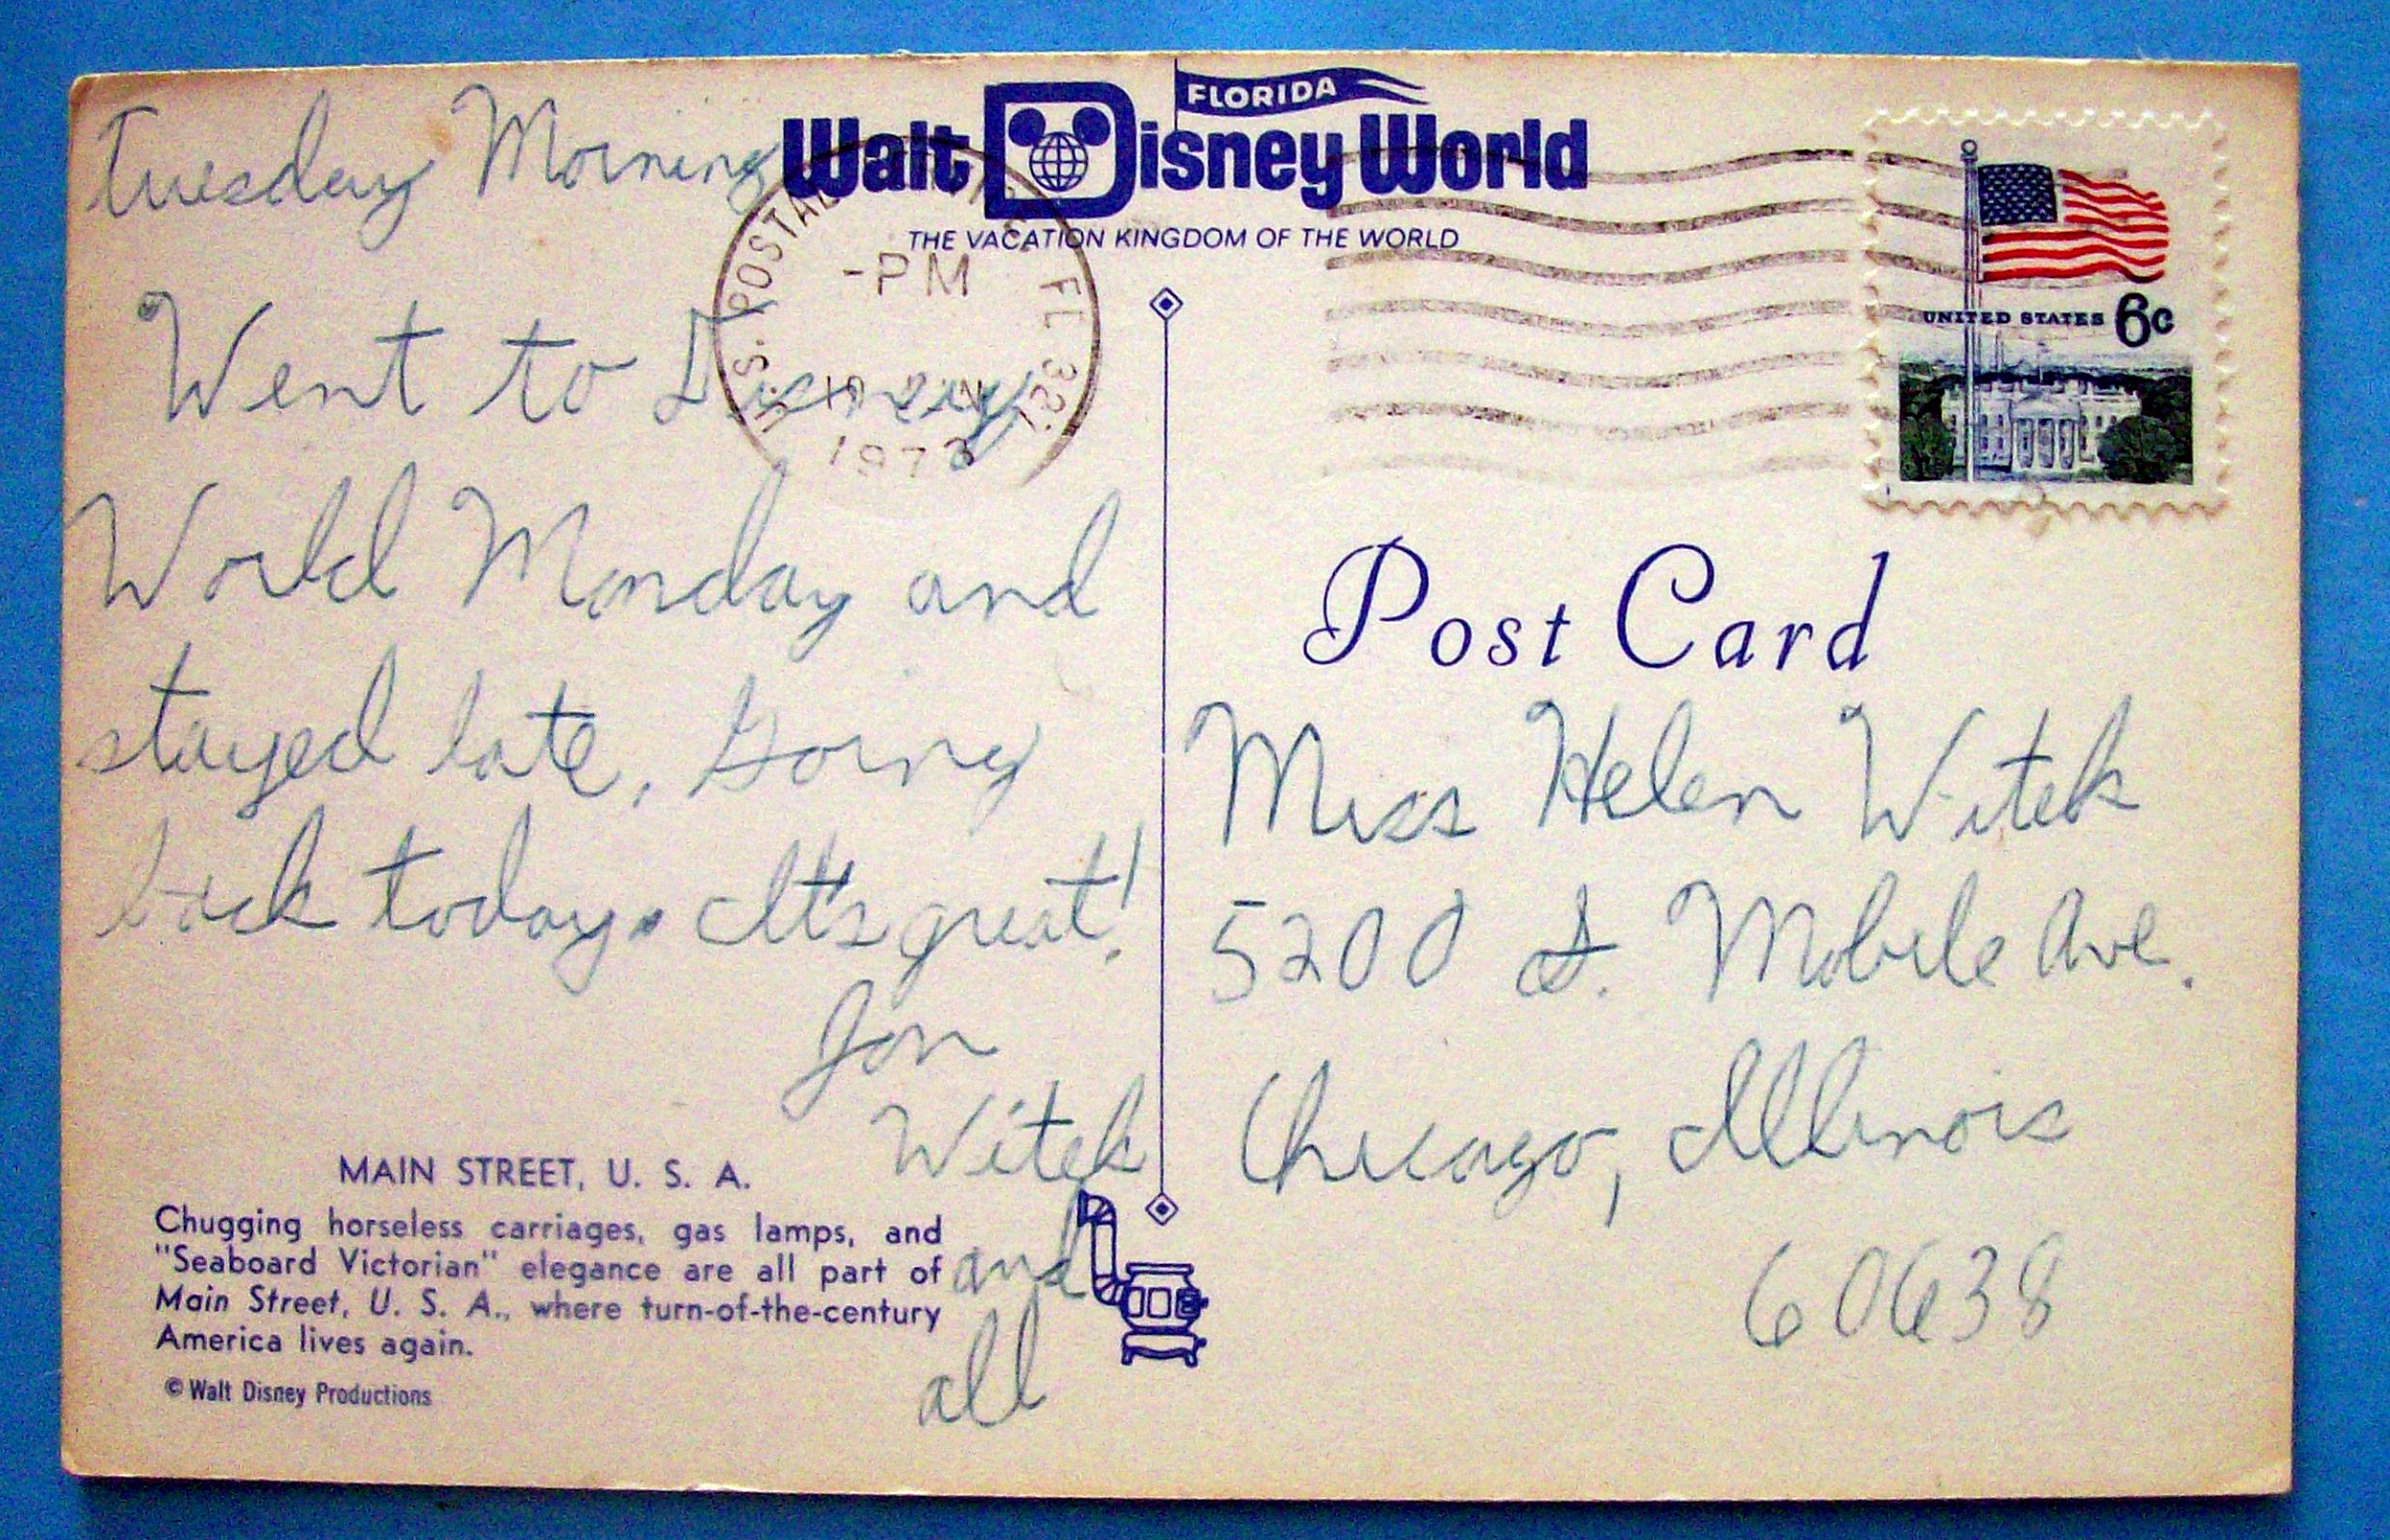 FLORIDA
Walt Disney World
THE VACATION KINGDOM OF THE WORLD
Tuesday Morning
Went to Disney
World Monday and
stayed late, Going
back today. It's great!
Jon
Witek
and
all
MAIN STREET, U. S. A.
Chugging horseless carriages, gas lamps, and
"Seaboard Victorian" elegance are all part of
Main Street, U. S. A., where turn-of-the-century
America lives again.
© Walt Disney Productions
U.S. POSTAL FL
-PM
197
UNITED STATES 6c
Post Card
Miss Helen Witek
5200 S. Mobile Ave.
Chicago, Illinois
60638